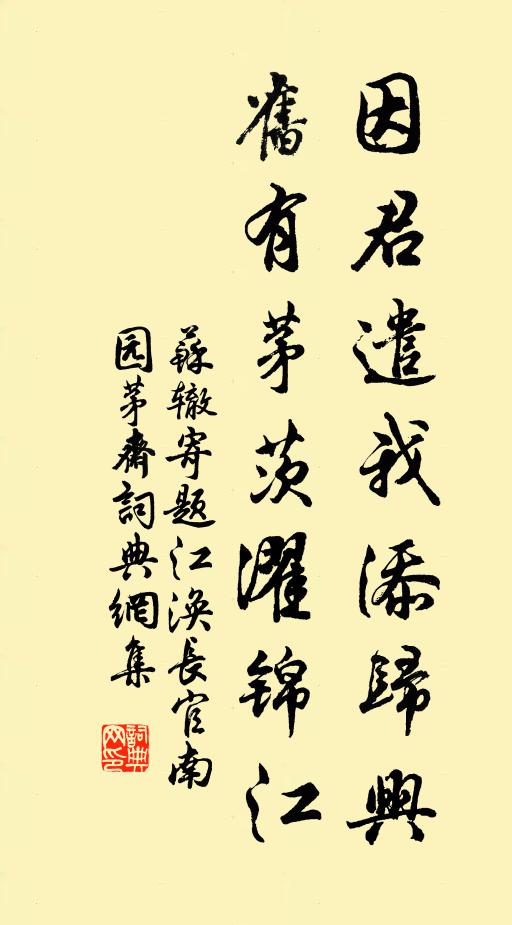 因君遣我添歸興
舊有茅茨濯錦江
蘇辙寄題江渙長官南
园茅齋詞典網集
詞典
网印